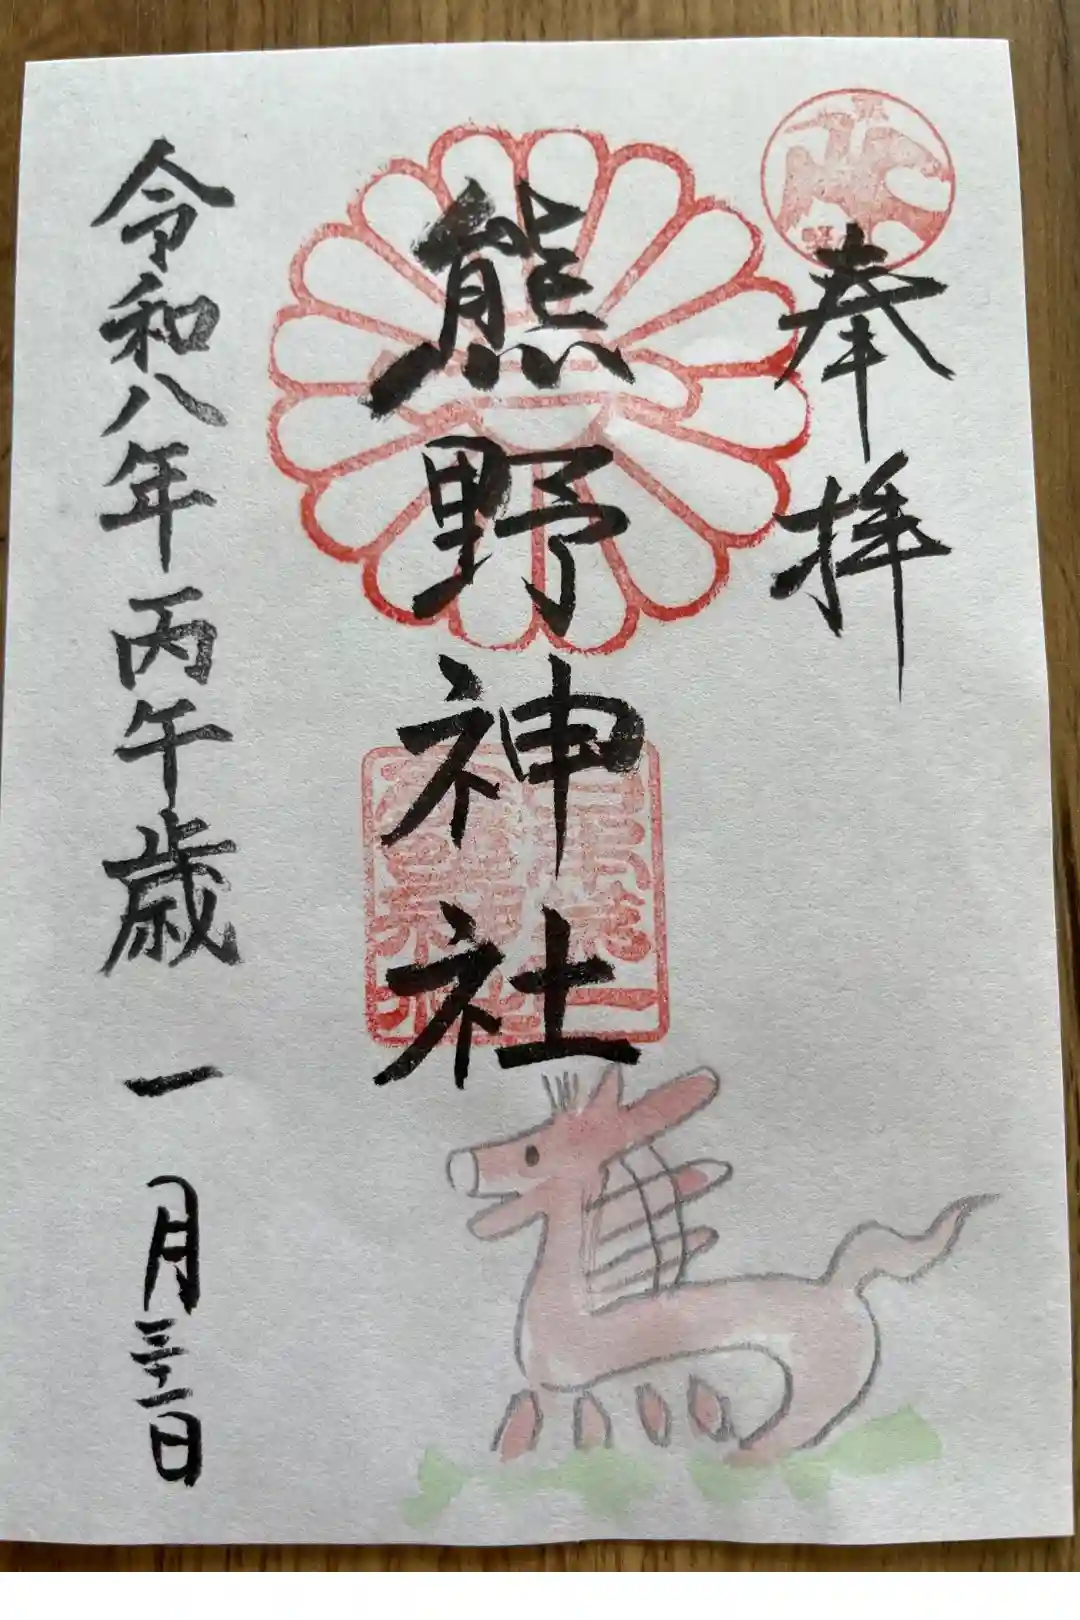 奉拝
熊野神社
令和八年丙午歳 一月三十一日